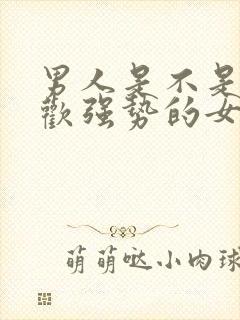 男人是不是
歡强势的女
萌萌哒小肉球